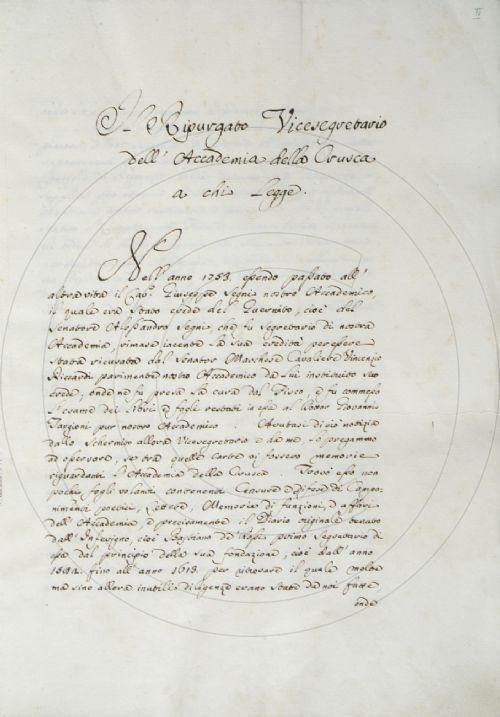 II
Il Ripurgato Vicesegretario
dell' Accademia della Crusca
a chi Legge.
Nell' anno 1753. essendo passato all'
altra vita il Cav. Giuseppe Segni nostro Accademico,
il quale era stato erede del Guernito, cioè del
Senatore Alessandro Segni, che fu segretario di nostra
Accademia, rimase iacente la sua eredità per essere
stata ricusata dal Senator Marchese Cavaliere Vincenzio
Riccardi parimente nostro Accademico da lui instituito suo
erede, onde ne fu presa la cura dal Fisco, e fu commesso
l'esame dei libri e fogli restanti in essa al Dottor Giovanni
Targioni pur nostro Accademico. Avutasi di ciò notizia
dallo Schermito allora Vicesegretario e da me, lo pregammo
ad osservare, se tra quelle Carte vi fossero memorie
riguardanti l'Accademia della Crusca. Trovò esso non
pochi fogli volanti contenenti Censure e difese di Compo-
nimenti poetici, Lettere, Memorie di funzioni, e affari
dell' Accademia, e precisamente il Diario originale tenuto
dall' Inferigno, cioè Bastiano de' Rossi primo Segretario di
essa dal principio della sua fondazione, cioè dall' anno
fino all' anno 1613. per ritrovare il quale molte
ma sino allora inutili diligenze erano state da noi fatte,
onde